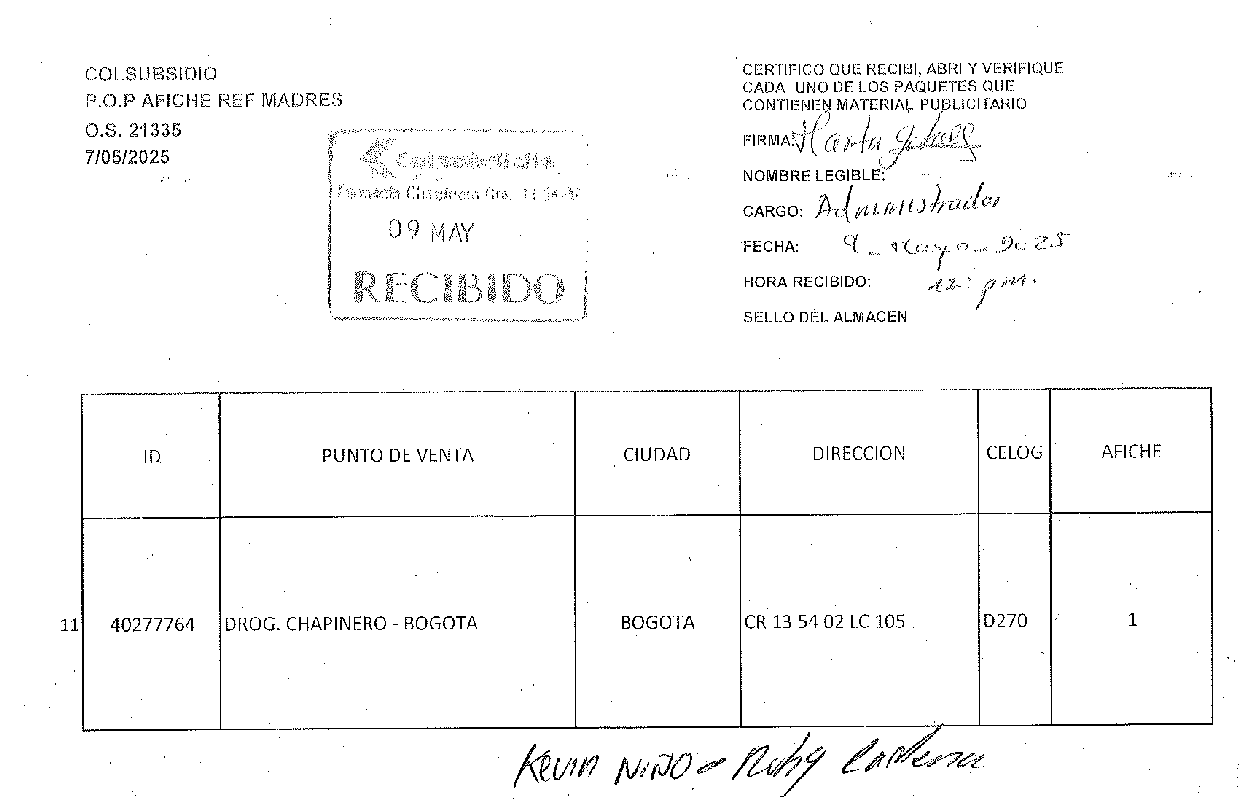 COLSUBSIDIO
P.O.P AFICHE REF MADRES
O.S. 21335
7/05/2025
Colsubsidio
09 MAY
RECIBIDO
CERTIFICO QUE RECIBI, ABRI Y VERIFIQUE
CADA UNO DE LOS PAQUETES QUE
CONTIENEN MATERIAL PUBLICITARIO
FIRMA:
NOMBRE LEGIBLE:
CARGO: Administrador
FECHA: 9 - Mayo - 2025
HORA RECIBIDO: 12: pm.
SELLO DEL ALMACEN
ID PUNTO DE VENTA CIUDAD DIRECCION CELOG AFICHE
11 40277764 DROG. CHAPINERO - BOGOTA BOGOTA CR 13 54 02 LC 105 D270 1
Kevin NIÑO